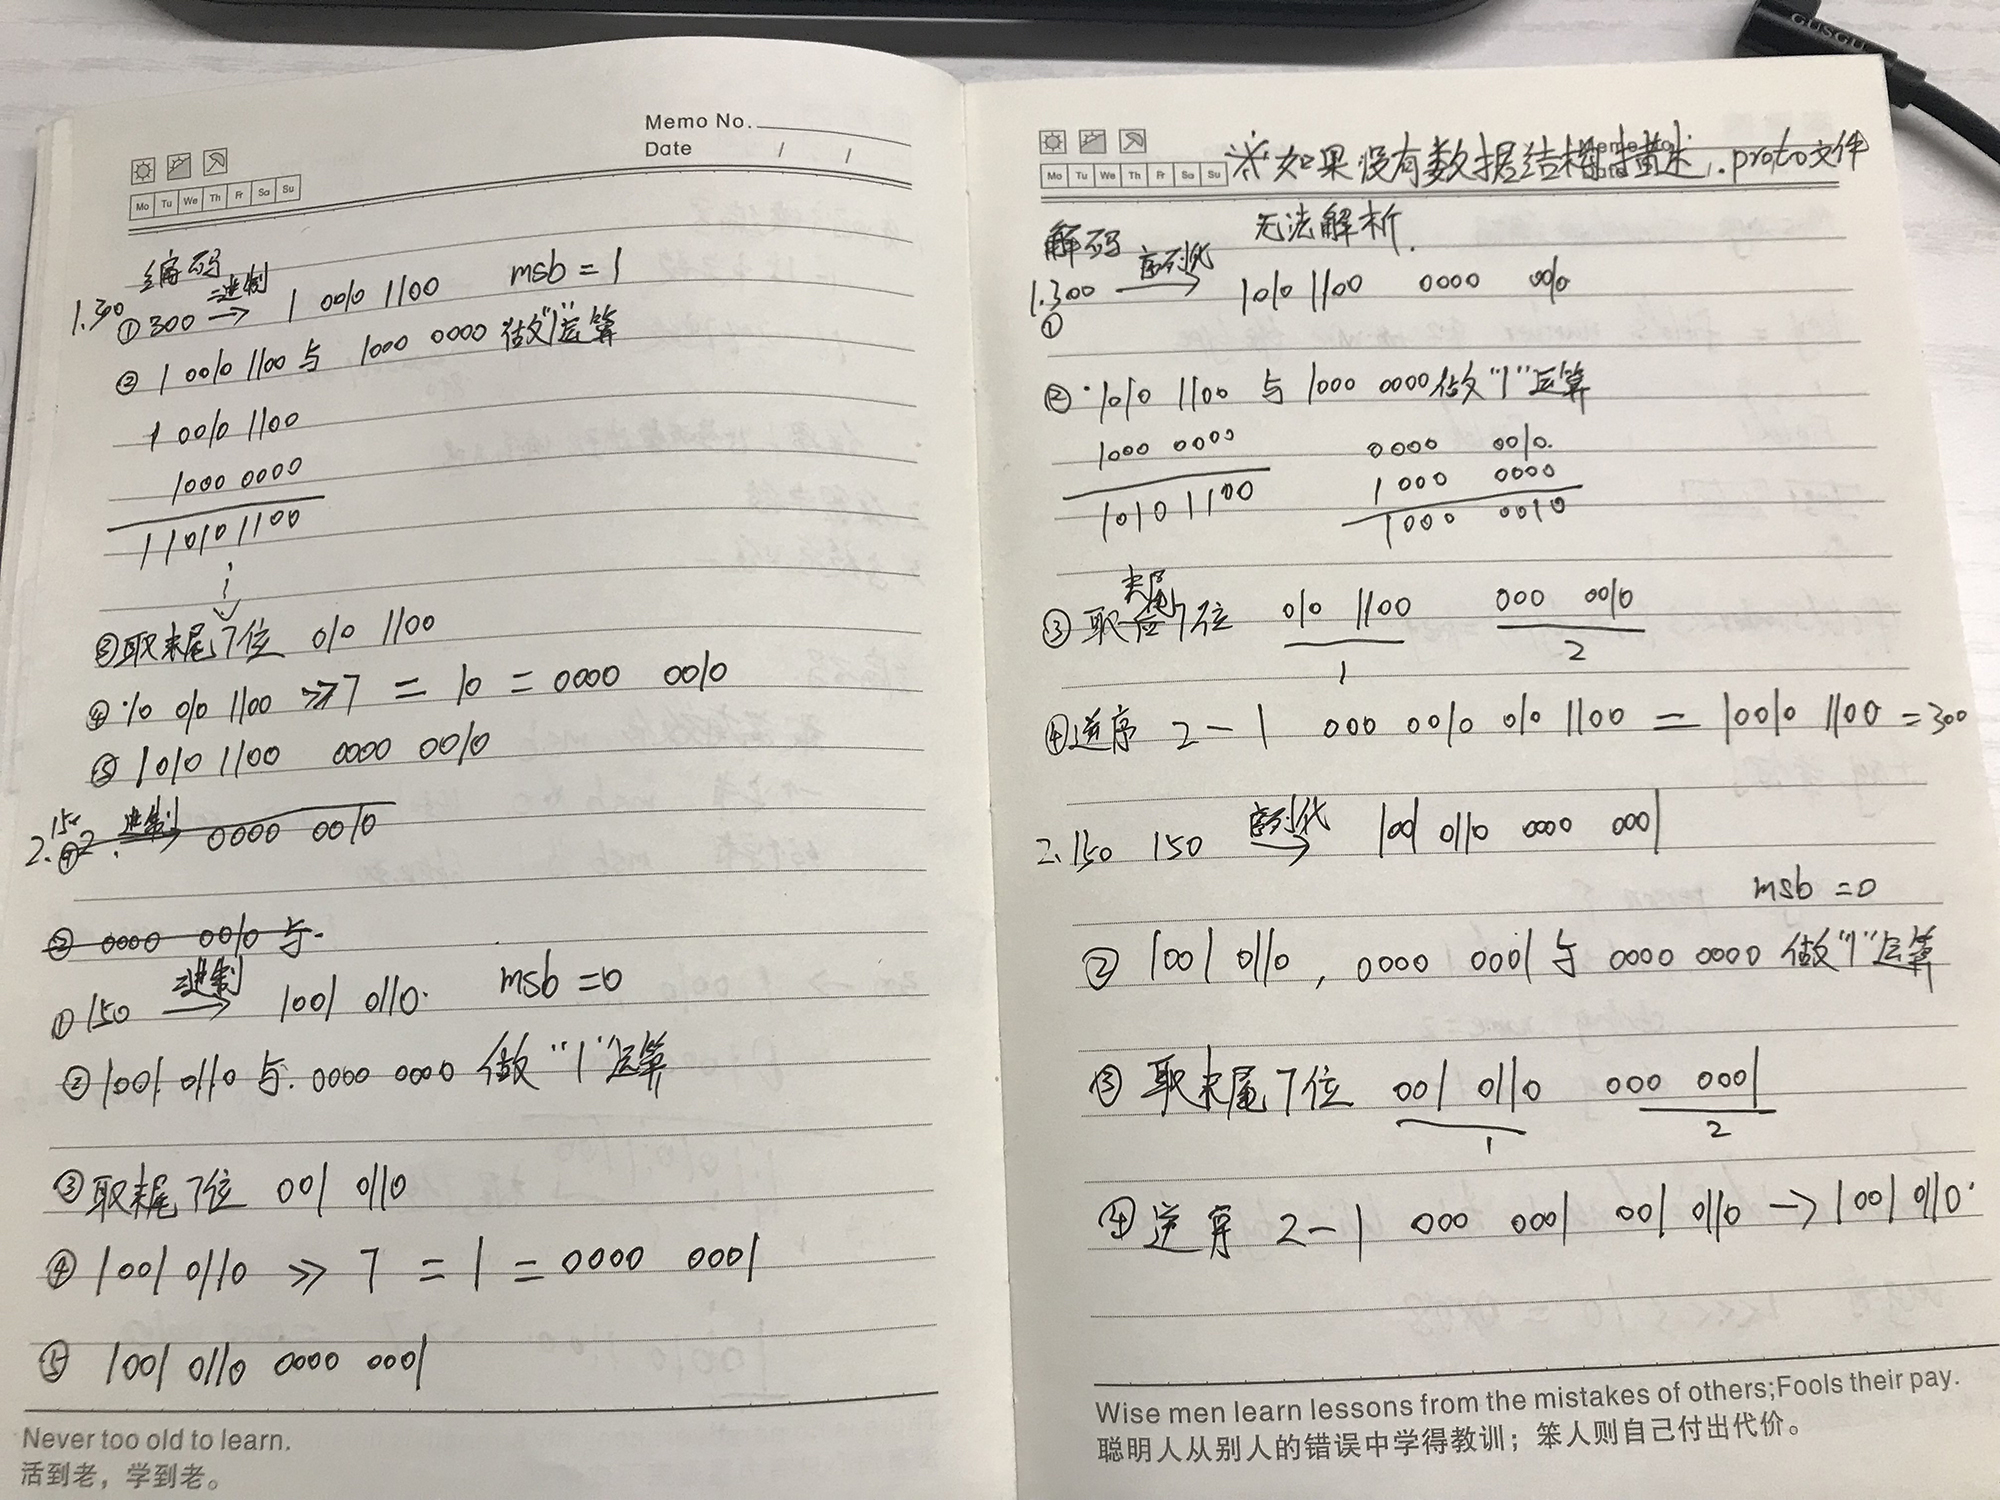 Memo No.
Date / /
Mo Tu We Th Fr Sa Su
编码
1.300
① 300 二进制→ 1 0010 1100 msb = 1
② 1 0010 1100 与 1000 0000 做"|"运算
1 0010 1100
1000 0000
1 1010 1100
③取末尾7位 010 1100
④ 10 010 1100 >> 7 = 10 = 0000 0010
⑤ 1010 1100 0000 0010
2.150
① 2. 二进制→ 0000 0010
② 0000 0010 与.
① 150 二进制→ 1001 0110. msb = 0
② 1001 0110 与. 0000 0000 做"|"运算
③ 取末尾7位 001 0110
④ 1001 0110 >> 7 = 1 = 0000 0001
⑤ 1001 0110 0000 0001
Never too old to learn.
活到老，学到老。
Mo Tu We Th Fr Sa Su
※如果没有数据结构描述.proto文件
无法解析.
解码
1.300 序列化→ 1010 1100 0000 0010
①
② 1010 1100 与 1000 0000 做"|"运算
1000 0000 0000 0010.
1000 0000
1010 1100 1000 0010
③ 取末尾7位 010 1100 000 0010
1 2
④逆序 2-1 000 0010 010 1100 = 10010 1100 = 300
2.150 150 序列化→ 1001 0110 0000 0001
msb = 0
② 1001 0110 , 0000 0001 与 0000 0000 做"|"运算
③ 取末尾7位 001 0110 000 0001
1 2
④ 逆序 2-1 000 0001 001 0110 → 1001 0110.
Wise men learn lessons from the mistakes of others;Fools their pay.
聪明人从别人的错误中学得教训；笨人则自己付出代价。
GUSGU